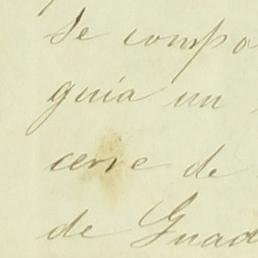 se compo
guia un
cerre de
de Guad